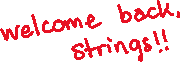 welcome back,
strings!!